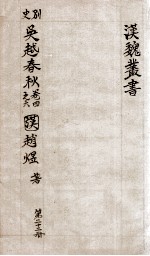 漢魏叢書
別史
吳越春秋 卷四之六 漢 趙煜 著
第二十三册